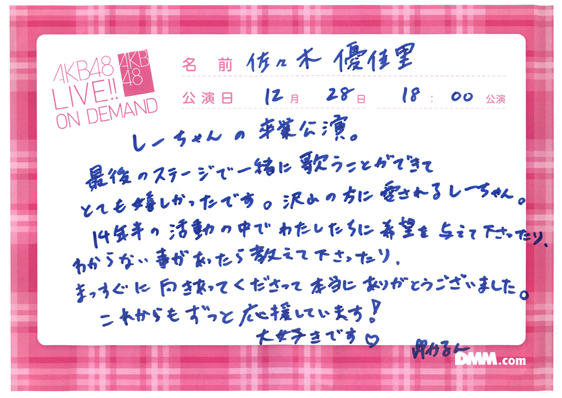 AKB48
LIVE!!
ON DEMAND
AKB
48
名前 佐々木 優佳里
公演日 12月 28日 18:00公演
しーちゃんの卒業公演。
最後のステージで一緒に歌うことができて
とても嬉しかったです。沢山の方に愛されるしーちゃん。
14年半の活動の中でわたしたちに希望を与えて下さったり、
わからない事があったら教えて下さったり、
まっすぐに向き合ってくださって本当にありがとうございました。
これからもずっと応援しています!
大好きです♡
DMM.com